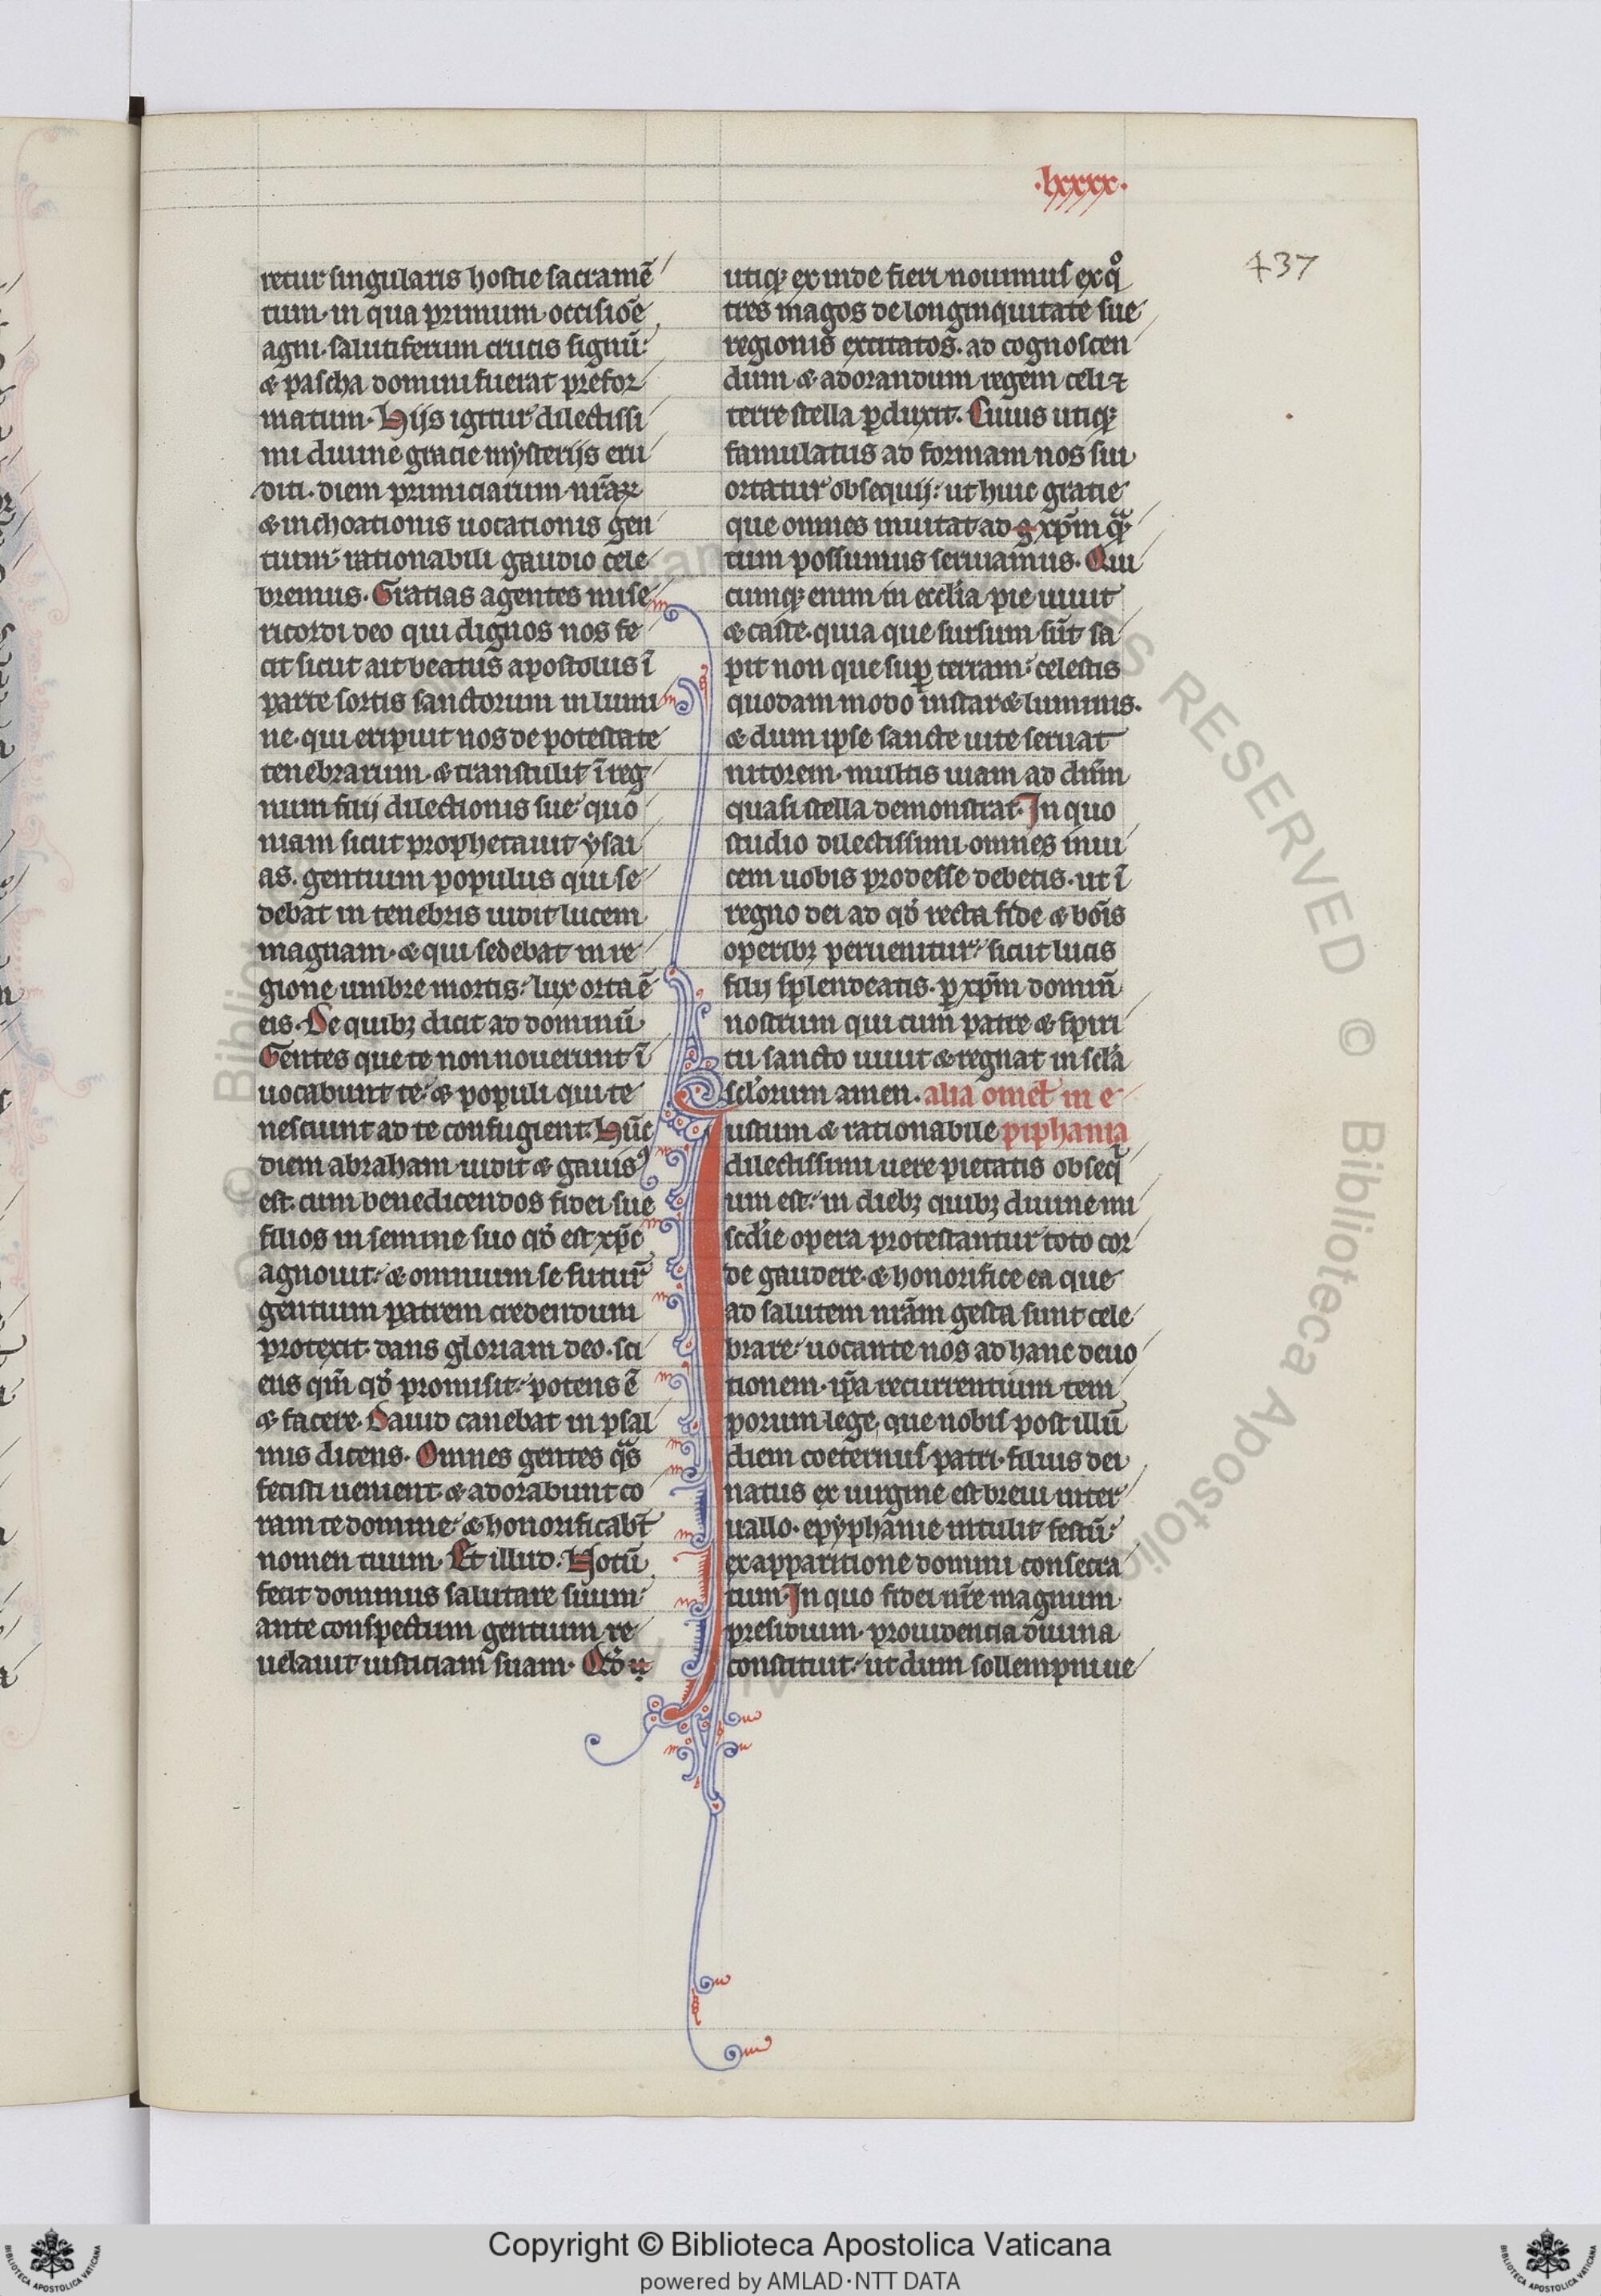 ·lxxxx·
437
retur singularis hostie sacramē
tum· in qua primum· occisiōe
agni· salutiferum crucis signū:
& pascha domini fuerat prefor
matum· Hijs igitur dilectissi
mi diuine gratie mẏsterijs eru
diti· diem primiciarum nr̄aꝝ
& inchoationis uocationis gen
tium: rationabili gaudio cele
bremus· Gratias agentes mise
ricordi deo qui dignos nos fe
cit sicut ait beatus apostolus ī
parte sortis sanctorum in lumi
ne· qui eripuit nos de potestate
tenebrarum· & transtulit ī reg
num filij dilectionis sue: quo
niam sicut prophetauit ẏsai
as· gentium populus qui se
debat in tenebris uidit lucem
magnam· & qui sedebat in re
gione umbre mortis: lux orta ē
eis· De quibꝫ dicit ad dominū
Gentes que te non nouerunt ī
uocabunt te: & populi qui te
nesciunt ad te confugient· Hūc
diem abraham uidit & gauisꝰ
est: cum benedicendos fidei sue
filios in semine suo qd̓ est xp̄c
agnouit: & omnium se futur̄
gentium patrem credendum
protexit· dans gloriam deo· sci
ens qm̄ qd̓ promisit: potens ē
& facere· Dauid canebat in psal
mis dicens· Omnes gentes qͣs
fecisti uenient & adorabunt co
ram te domine: & honorificabt̄
nomen tuum· Et illud· Notū
fecit dominus salutare suum:
ante conspectum gentium re
uelauit iusticiam suam· Qd̓
utiqꝫ exinde fieri nouimus ex qͦ
tres magos de longinquitate sue
regionis excitatos· ad cognoscen
dum & adorandum regem celi ⁊
terre stella ꝑduxit· Cuius utiqꝫ
famulatus ad formam nos sui
ortatur obsequij: ut huic gratie
que omnes inuitat ad xp̄m qͣ̄
tum possumus seruiamus· Qui
cumqꝫ enim in eccl̓ia pie uiuit
& caste· quia que sursum sūt sa
pit non que suꝑ terram: celestis
quodam modo instar & luminis·
& dum ipse sancte uite seruat
nitorem· multis uiam ad dūm
quasi stella demonstrat· In quo
studio dilectissimi· omnes inui
cem uobis prodesse debetis· ut ī
regno dei ad qd̓ recta fide & boīs
operibꝫ peruenitur: sicut lucis
filij splendeatis· ꝑ xp̄m domin̄
nostrum qui cum patre & spiri
tu sancto uiuit & regnat in scl̓a
scl̓orum amen· alia omel̓ in e
Iustum & rationabile piphania
dilectissimi uere pietatis obseqͥ
um est: in diebꝫ quibꝫ diuine mi
scd̓ie opera protestantur toto cor
de gaudere· & honorifice ea que
ad salutem nr̄am gesta sunt cele
brare: uocante nos ad hanc deuo
tionem· ip̄a recurrentium tem
porum lege, que nobis post illū
diem coeternus patri· filius dei
natus ex uirgine est breui inter
uallo· epẏphanie intulit festū:
ex apparitione domini consecra
tum· In quo fidei nr̄e magnum
presidium· prouidencia diuina
constituit: ut dum sollempni ue
Copyright © Biblioteca Apostolica Vaticana
powered by AMLAD·NTT DATA